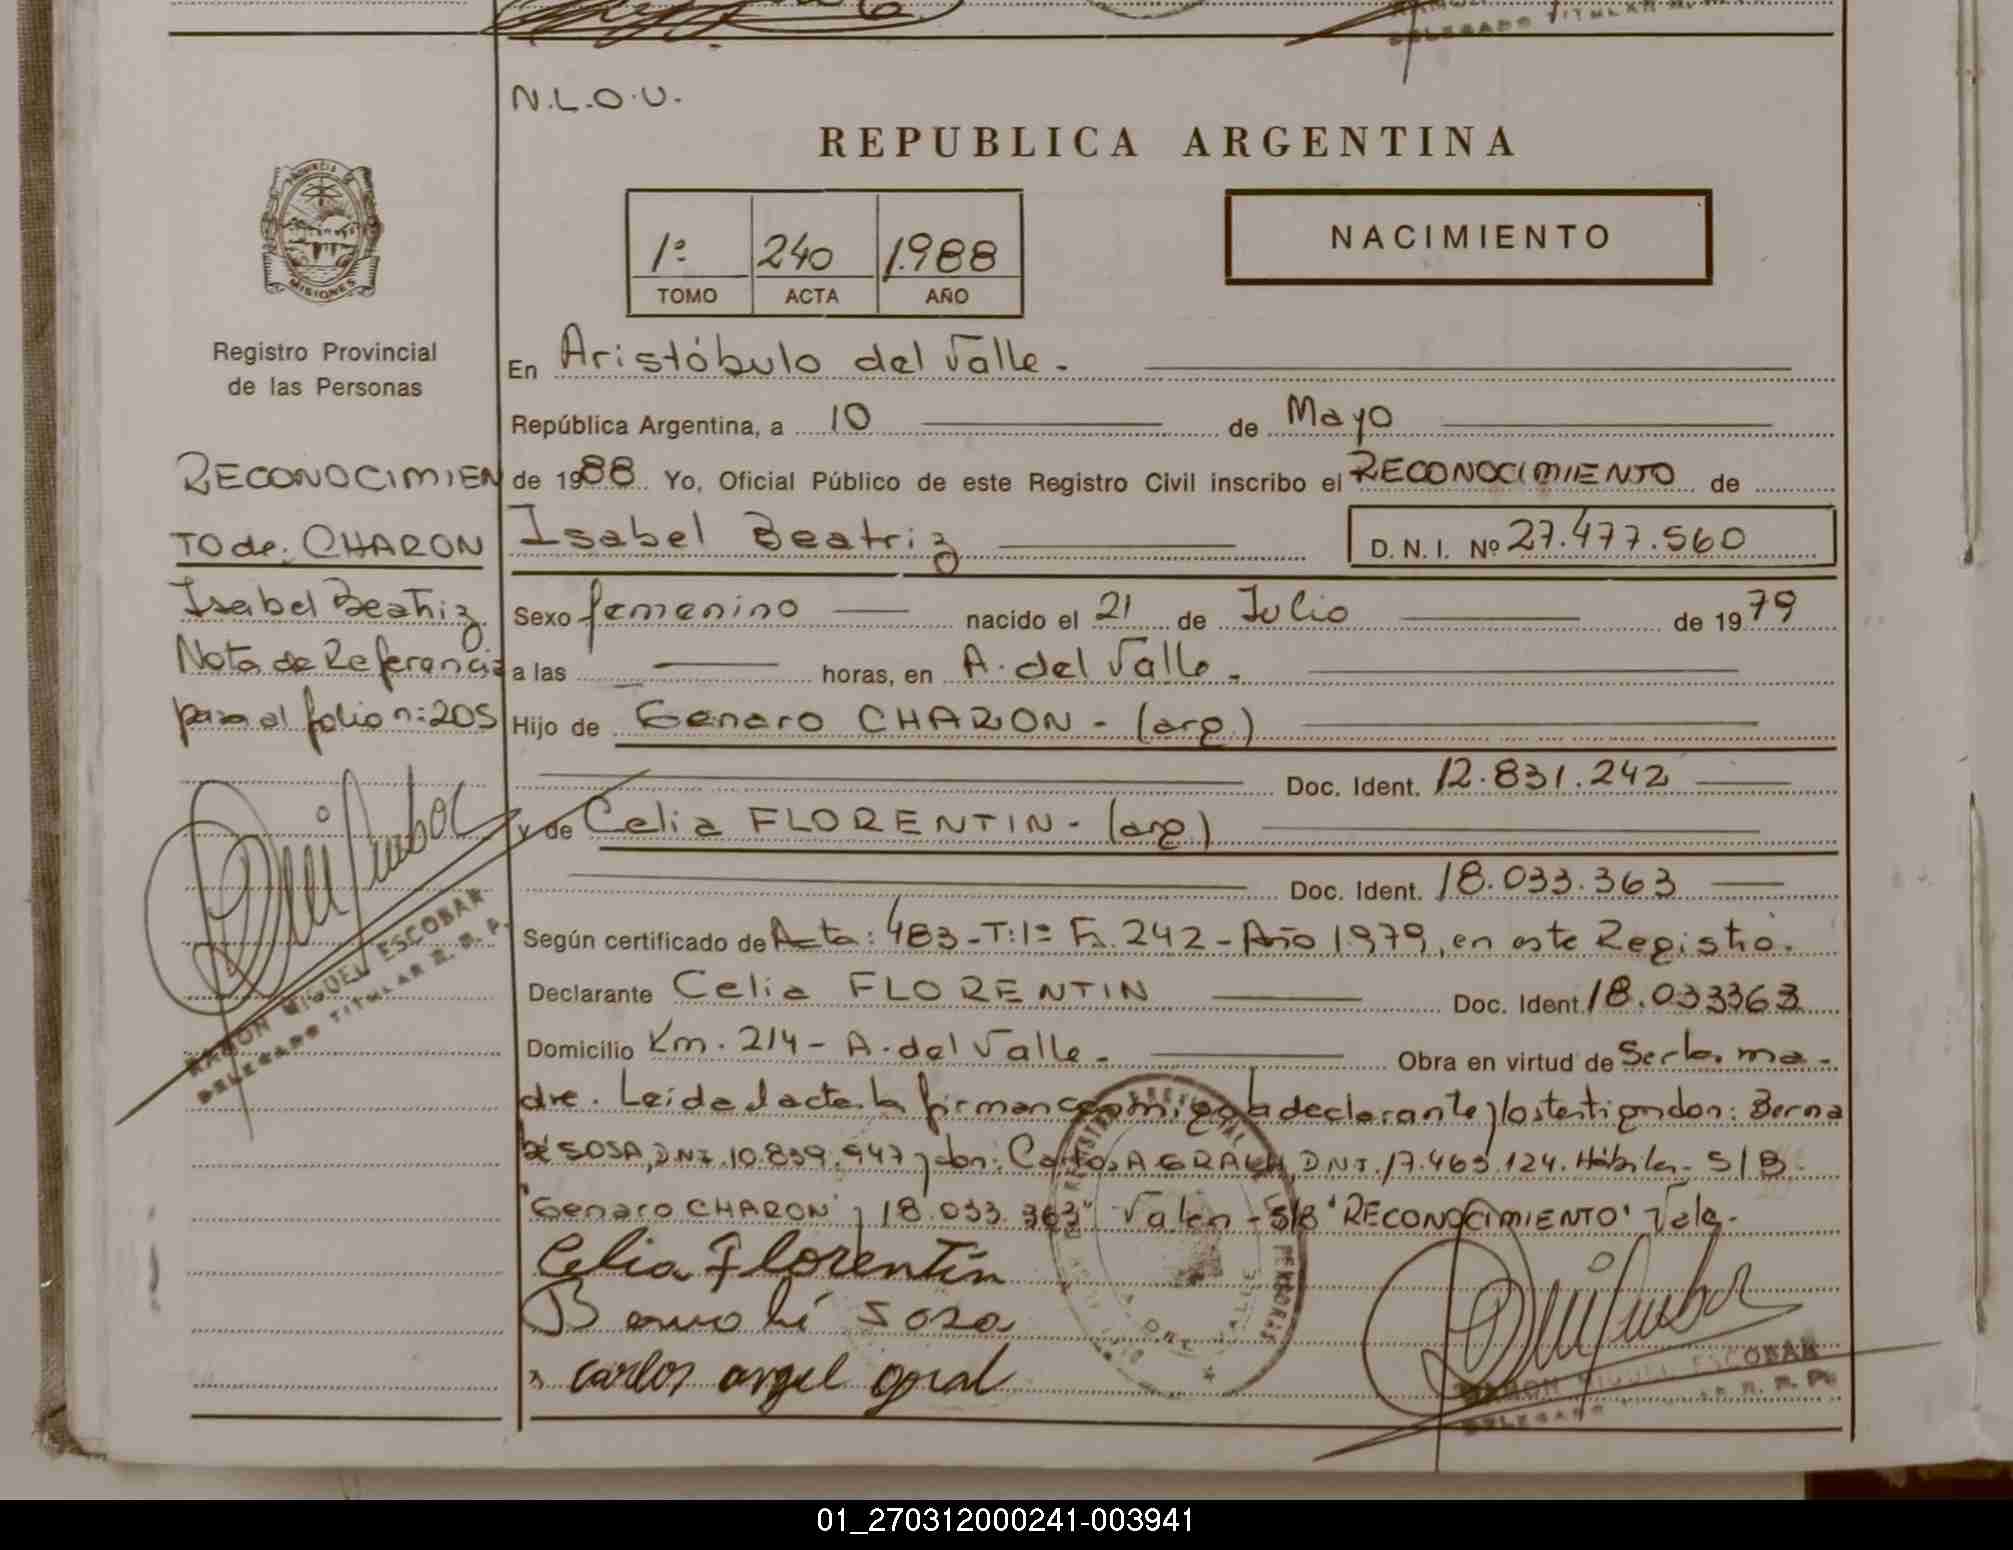 DELEGADO TITULAR
N.L.O.U.
REPUBLICA ARGENTINA
1º 240 1.988
TOMO ACTA AÑO
NACIMIENTO
PROVINCIA DE
MISIONES
Registro Provincial
de las Personas
En Aristóbulo del Valle.-
República Argentina, a 10 de Mayo
de 1988 Yo, Oficial Público de este Registro Civil inscribo el RECONOCIMIENTO de
Isabel Beatriz D. N. I. Nº 27.477.560
Sexo femenino nacido el 21 de Julio de 1979
a las horas, en A. del Valle.-
Hijo de Genaro CHARON - (arg)
Doc. Ident. 12.831.242
y de Celia FLORENTIN - (arg)
Doc. Ident. 18.033.363
Según certificado de Acta: 483-T:1º F. 242-Año 1.979, en este Registro.
Declarante Celia FLORENTIN Doc. Ident. 18.033363
Domicilio Km. 214 - A. del Valle.- Obra en virtud de Ser la ma-
dre. Leída el acta la firman conmigo la declarante y los testigos don: Berna
bé SOSA, DNI. 10.839.947 y don: Carlos A GRAL, DNI. 17.463.124. Hábiles- S/B.
"Genaro CHARON" y 18.033.363" Valen - S/B "RECONOCIMIENTO" Vale.-
Celia Florentín
Bernabé Sosa
carlos angel gral
RAMON MIGUEL ESCOBAR
DELEGADO
RECONOCIMIEN
TO de: CHARON
Isabel Beatriz
Nota de Referencia
para el folio nº: 205
RAMON MIGUEL ESCOBAR
DELEGADO TITULAR R. P.
01_270312000241-003941